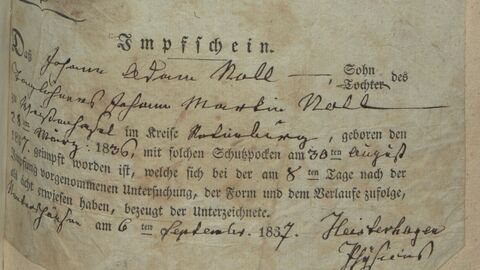 Impfschein.
Daß Johann Adam Noll —, Sohn
Tochter des
Taglöhners Johann Martin Noll
zu Weißenhasel im Kreise Rotenburg, geboren den
28 ten März 1836, mit solchen Schutzpocken am 30 ten August
1837. geimpft worden ist, welche sich bei der am 8 ten Tage nach der
Impfung vorgenommenen Untersuchung, der Form und dem Verlaufe zufolge,
als ächt erwiesen haben, bezeugt der Unterzeichnete.
am 6 ten September 1837. Heisterhagen
Physicus